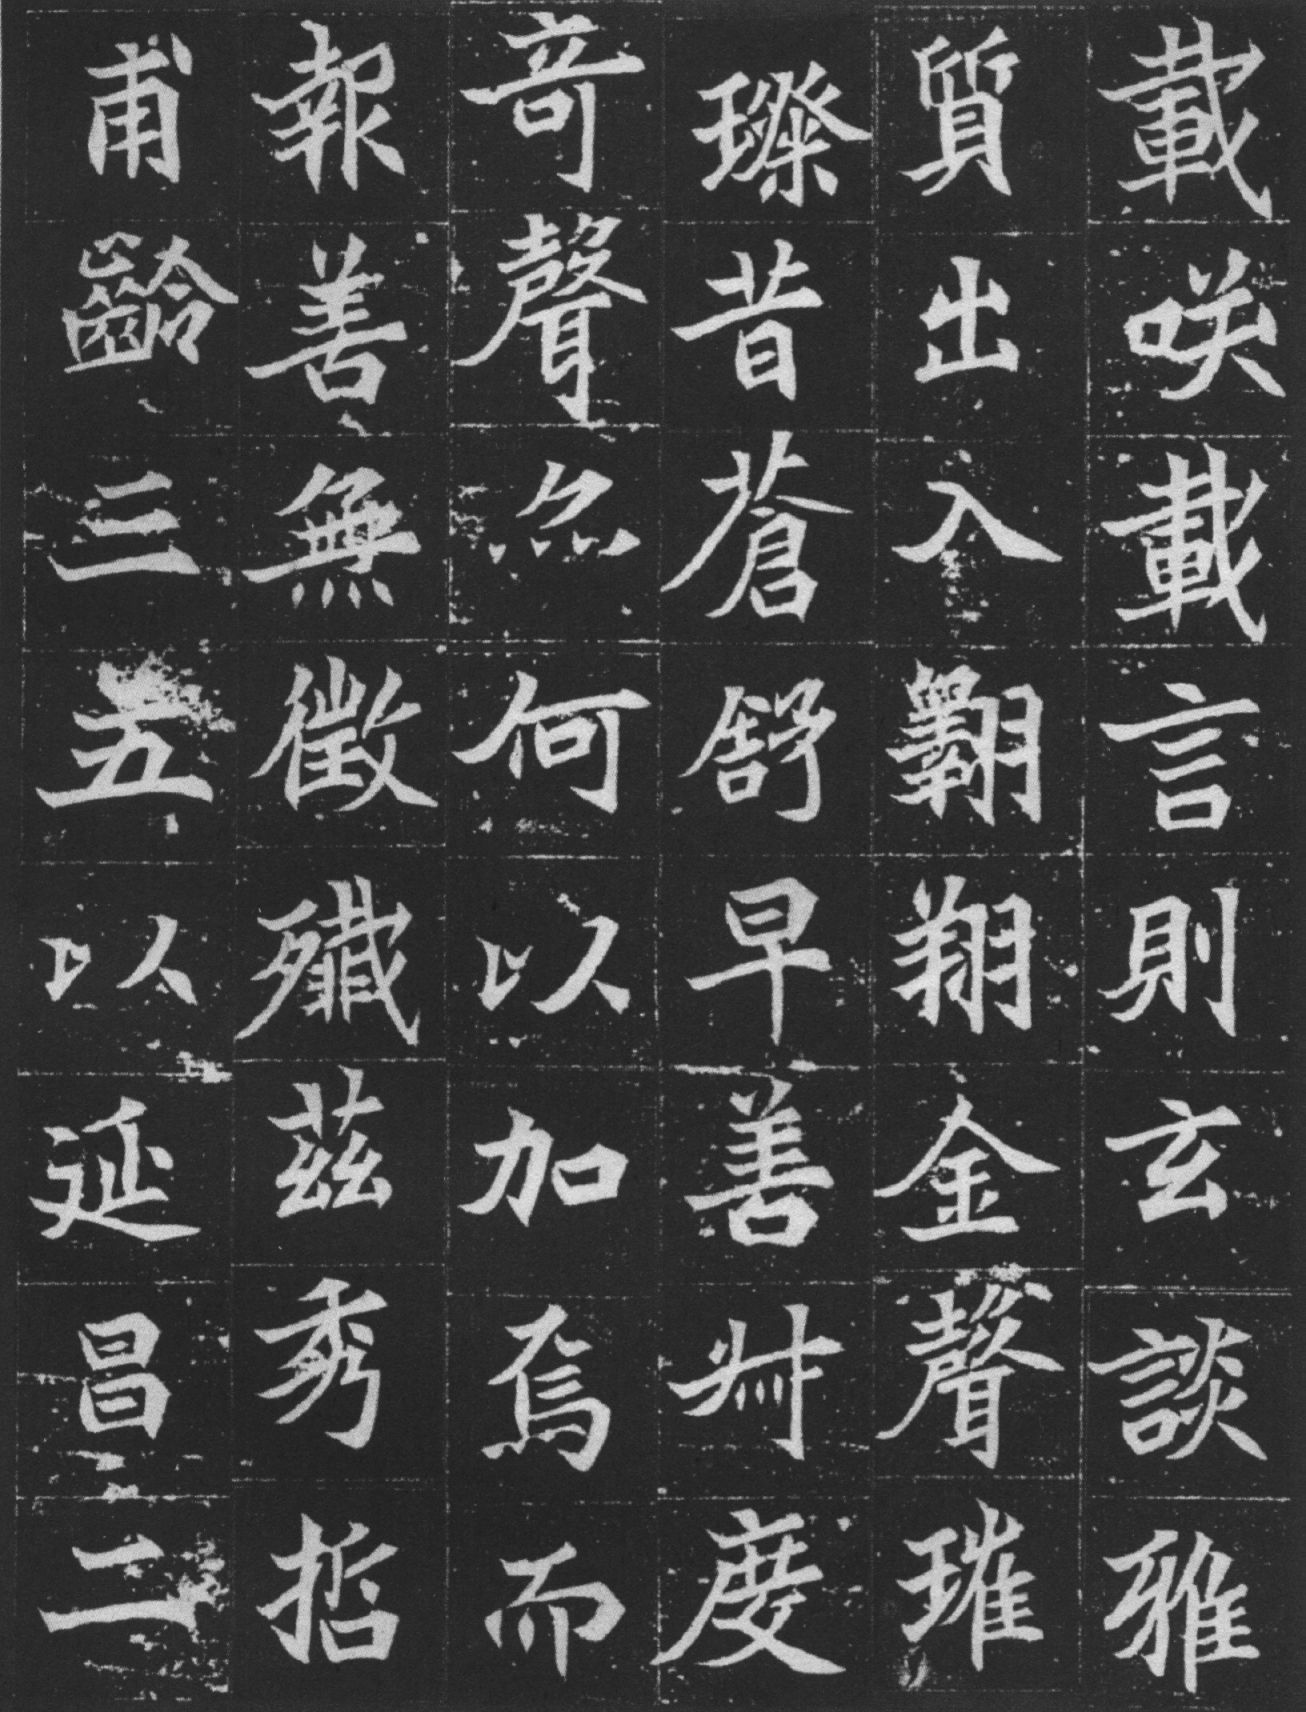 載咲載言則玄談雅
質出入翺翔金聲璀
璨昔蒼舒早善艸度
竒聲尒何以加焉而
報善無徵殲茲秀哲
甫齡三五以延昌二